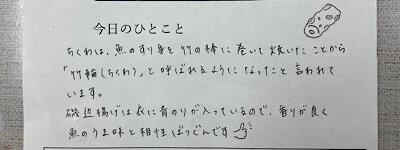 今日のひとこと
ちくわは、魚のすり身を竹の棒に巻いて焼いたことから
「竹輪(ちくわ)」と呼ばれるようになったこと言われて
います。
磯辺揚げは衣に青のりが入っているので、香りが良く
魚のうま味と相性ばつぐんです